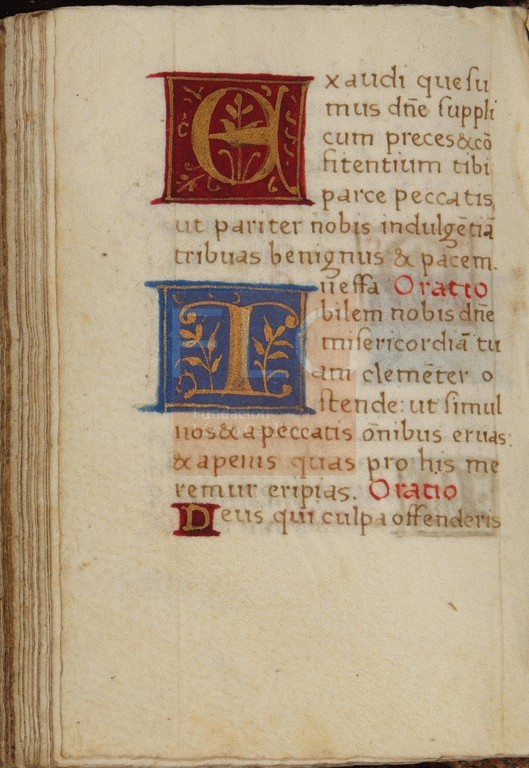 Exaudi quesu
mus dñe suppli
cum preces & cõ
fitentium tibi
parce peccatis
ut pariter nobis indulgẽtiã
tribuas benignus & pacem.
Ineffa Oratio
bilem nobis dñe
misericordiã tu
am clemẽter o
stende: ut simul
nos & a peccatis õnibus eruas:
& a penis quas pro his me
remur eripias. Oratio
Deus qui culpa offenderis